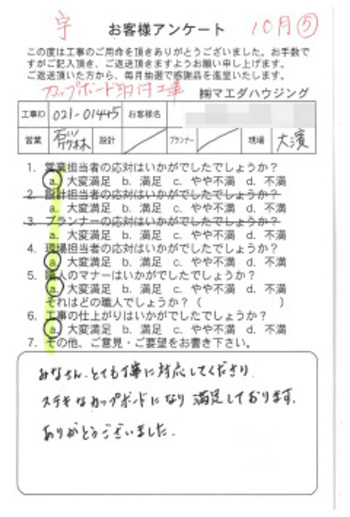 宇
お客様アンケート 10月⑤
この度は工事のご用命を頂きありがとうございました。お手数で
すがご記入頂き、ご返送頂きますようお願い申し上げます。
ご返送頂いた方から、毎月抽選で感謝品を進呈いたします。
カップボード取付工事 ㈱マエダハウジング
工事ID 021-01445 お客様名
営業 設計 プランナー 現場 大濱
1. 営業担当者の応対はいかがでしたでしょうか？
a. 大変満足 b. 満足 c. やや不満 d. 不満
2. 設計担当者の応対はいかがでしたでしょうか？
a. 大変満足 b. 満足 c. やや不満 d. 不満
3. プランナーの応対はいかがでしたでしょうか？
a. 大変満足 b. 満足 c. やや不満 d. 不満
4. 現場担当者の応対はいかがでしたでしょうか？
a. 大変満足 b. 満足 c. やや不満 d. 不満
5. 職人のマナーはいかがでしたでしょうか？
a. 大変満足 b. 満足 c. やや不満 d. 不満
それはどの職人でしょうか？（ ）
6. 工事の仕上がりはいかがでしたでしょうか？
a. 大変満足 b. 満足 c. やや不満 d. 不満
7. その他、ご意見・ご要望をお書き下さい。
みなさん、とても丁寧に対応してくださり
ステキなカップボードになり満足しております。
ありがとうございました。